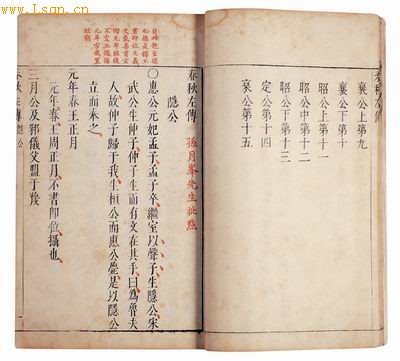 www.lsqn.cn
襄公上第九
襄公下第十
昭公上第十一
昭公中第十二
昭公下第十三
定公第十四
哀公第十五
春秋左傳 孫月峯先生批點
隱公
〇惠公元妃孟子孟子卒繼室以聲子生隱公宋
武公生仲子仲子生而有文在其手曰為魯夫
人故仲子歸于我生桓公而惠公薨是以隱公
立而奉之
元年春王正月
元年春王周正月不書即位攝也
三月公及邾儀父盟于蔑